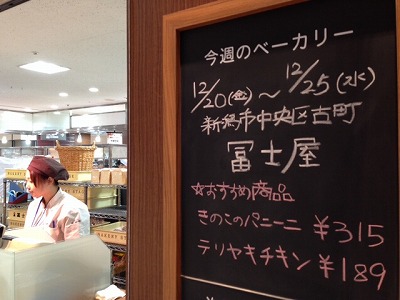 今週のベーカリー
12/20(金)～12/25(水)
新潟市中央区古町
冨士屋
☆おすすめ商品
きのこのパニーニ ¥315
テリヤキチキン ¥189